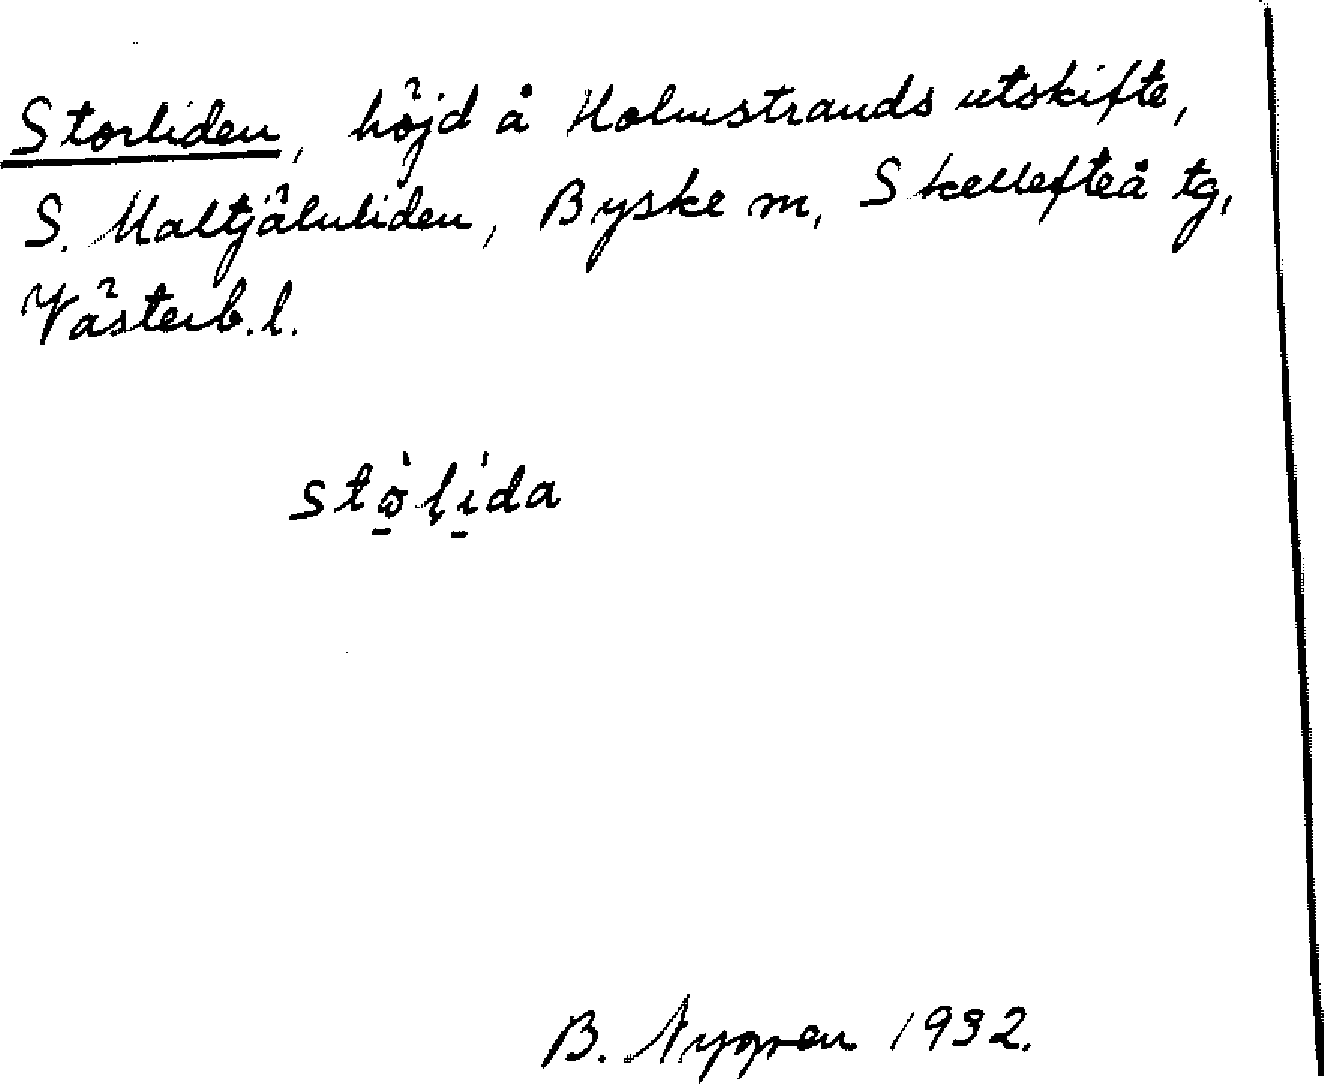 Storliden, höjd å Holmstrands utskifte,
S. Maltjälnliden, Byske m, Skellefteå tg,
Västerb. l.
stø̠̀ḷí̠da
B. Nygren 1932.